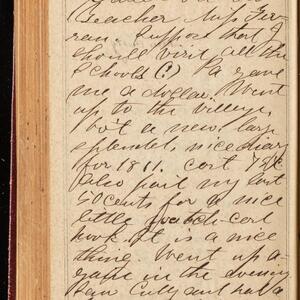 teacher Miss Fer-
ran. Suppose that I
should visit all the
schools (?) Pa gave
me a dollar. Went
up to the village,
bo't a new, large
splendid, nice diary
for 1811. cost 75c
Also paid my
50 cents for a nice
little watch
book. It is a nice
thing. Went up a-
gain in the evening
Saw Cully and had a